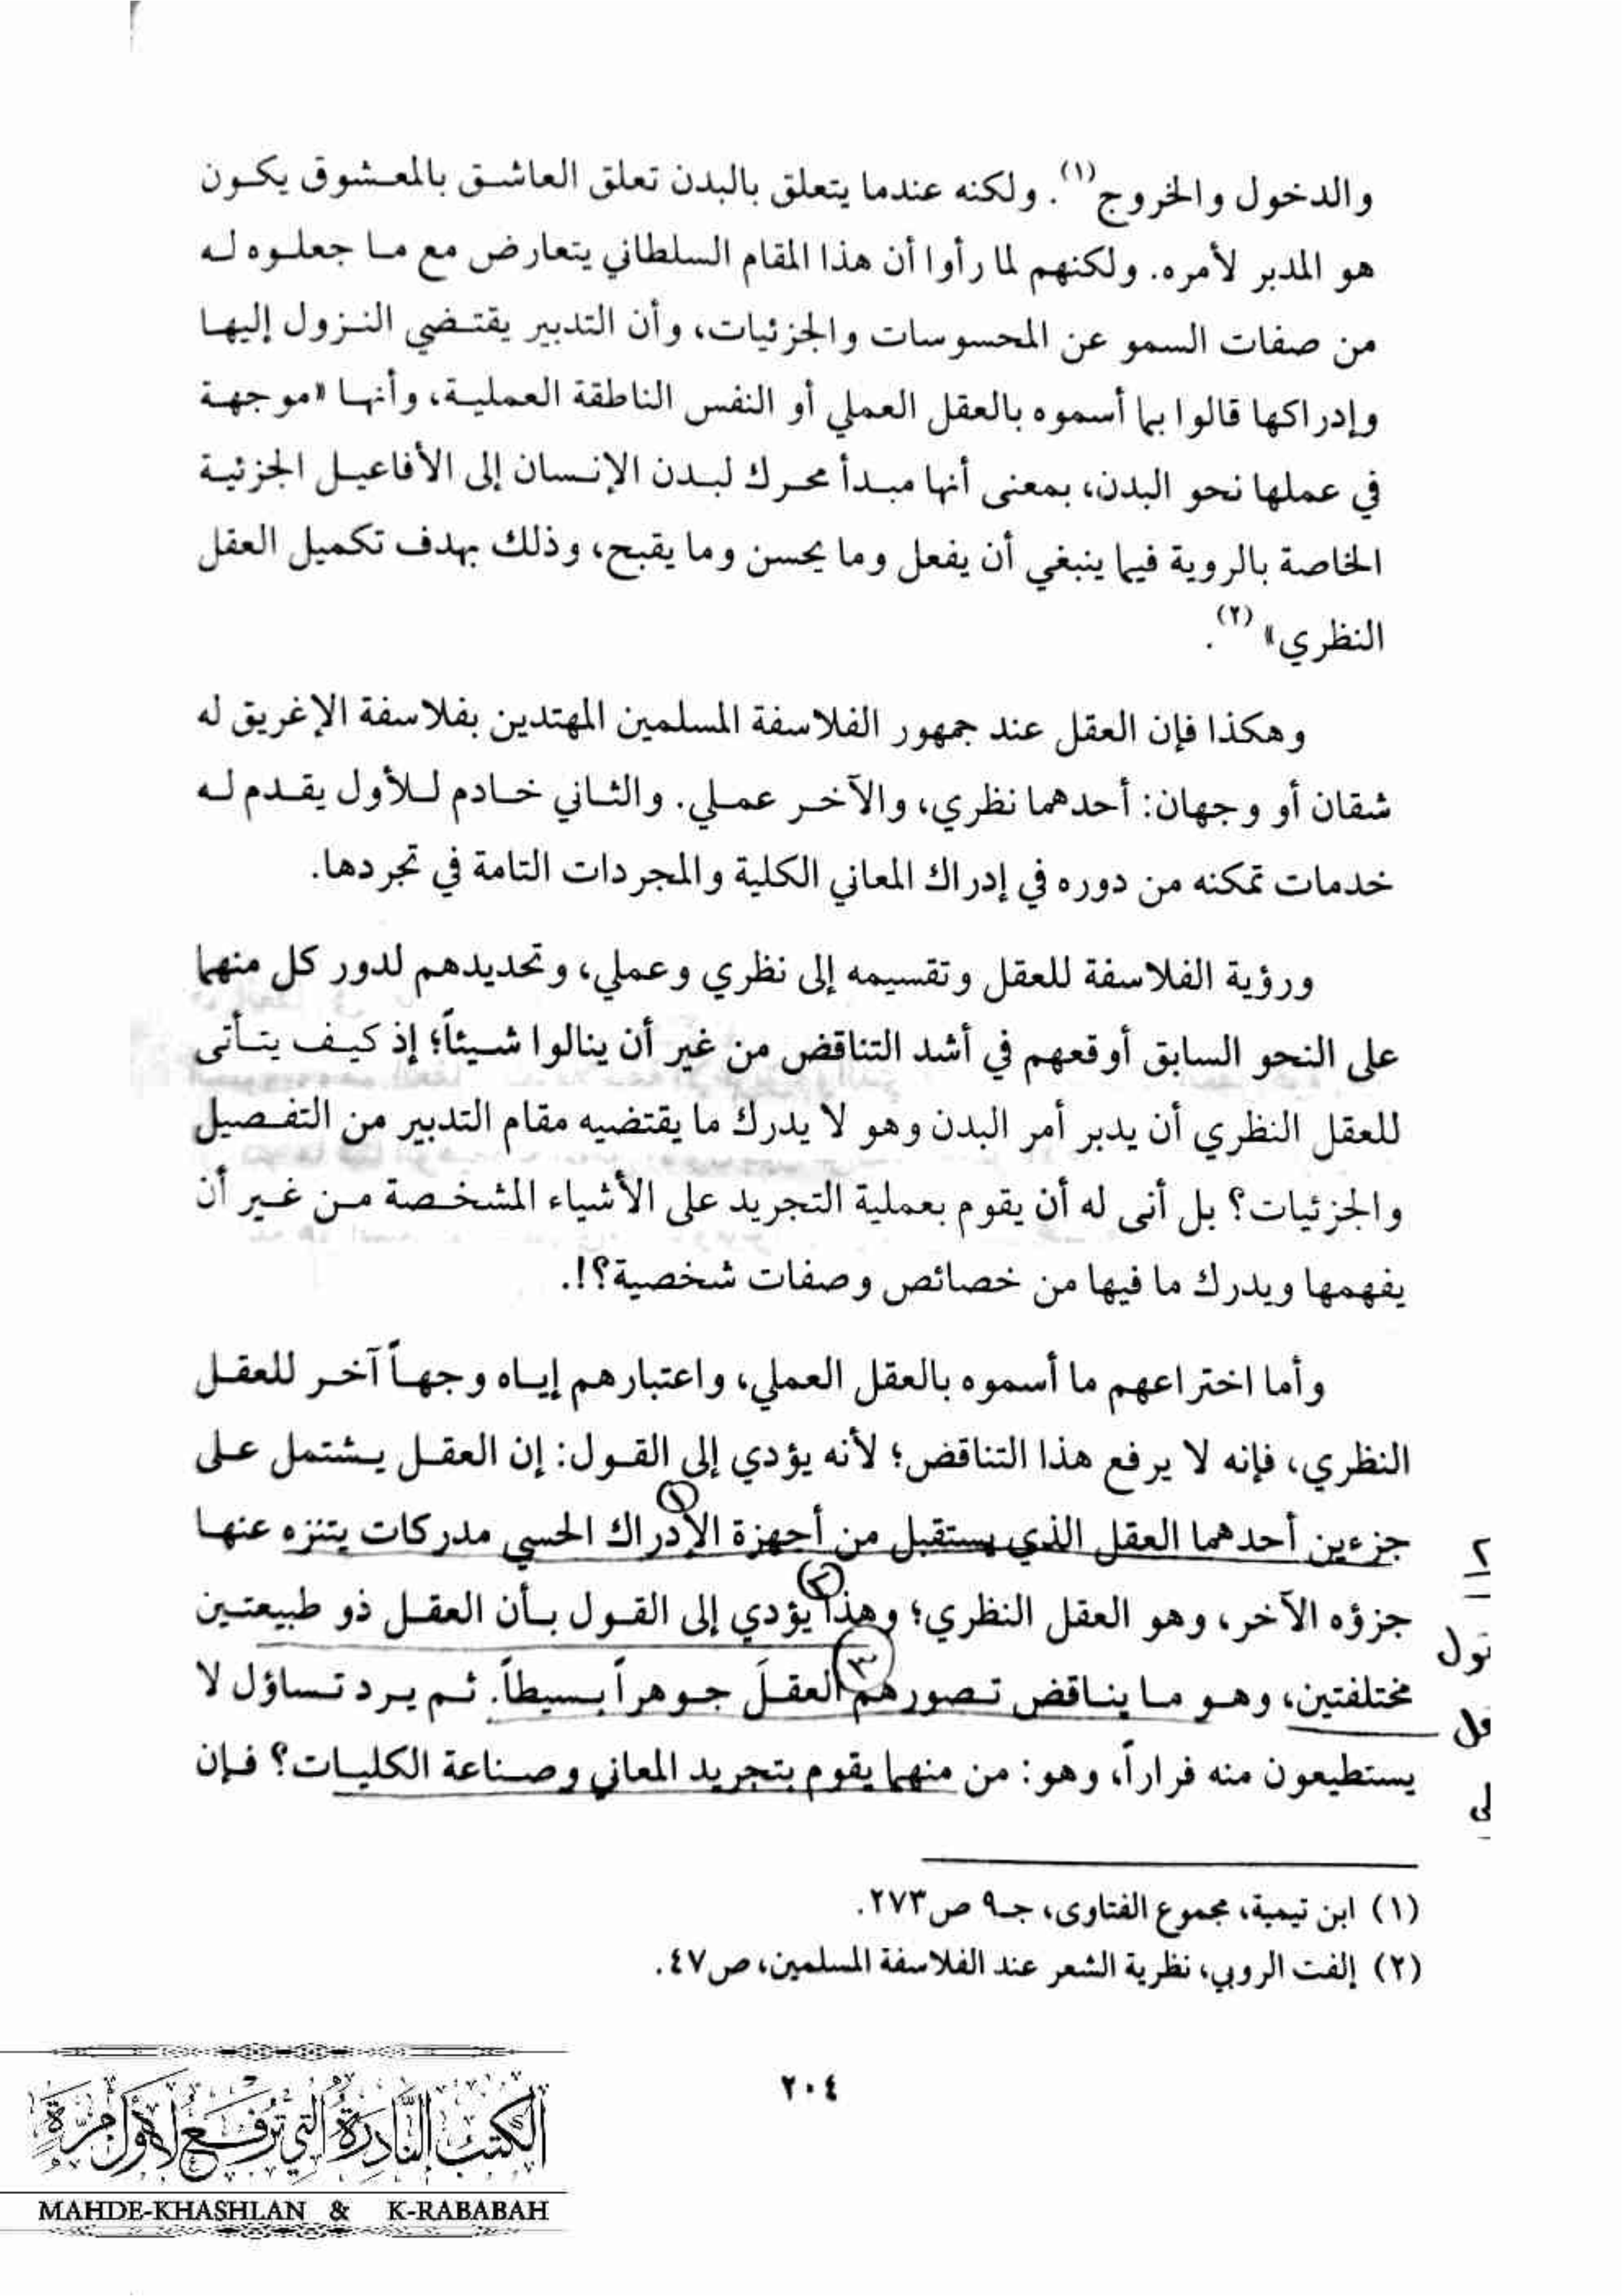 والدخول والخروج(١). ولكنه عندما يتعلق بالبدن تعلق العاشق بالمعشوق يكون
هو المدبر لأمره. ولكنهم لما رأوا أن هذا المقام السلطاني يتعارض مع ما جعلوه له
من صفات السمو عن المحسوسات والجزئيات، وأن التدبير يقتضي النزول إليها
وإدراكها قالوا بما أسموه بالعقل العملي أو النفس الناطقة العملية، وأنها «موجهة
في عملها نحو البدن، بمعنى أنها مبدأ محرك لبدن الإنسان إلى الأفاعيل الجزئية
الخاصة بالروية فيما ينبغي أن يفعل وما يحسن وما يقبح، وذلك بهدف تكميل العقل
النظري» (٢).
وهكذا فإن العقل عند جمهور الفلاسفة المسلمين المهتدين بفلاسفة الإغريق له
شقان أو وجهان: أحدهما نظري، والآخر عملي. والثاني خادم للأول يقدم له
خدمات تمكنه من دوره في إدراك المعاني الكلية والمجردات التامة في تجردها.
ورؤية الفلاسفة للعقل وتقسيمه إلى نظري وعملي، وتحديدهم لدور كل منهما
على النحو السابق أوقعهم في أشد التناقض من غير أن ينالوا شيئاً؛ إذ كيف يتأتى
للعقل النظري أن يدبر أمر البدن وهو لا يدرك ما يقتضيه مقام التدبير من التفصيل
والجزئيات؟ بل أنى له أن يقوم بعملية التجريد على الأشياء المشخصة من غير أن
يفهمها ويدرك ما فيها من خصائص وصفات شخصية؟!.
وأما اختراعهم ما أسموه بالعقل العملي، واعتبارهم إياه وجهاً آخر للعقل
النظري، فإنه لا يرفع هذا التناقض؛ لأنه يؤدي إلى القول: إن العقل يشتمل على
١
جزءين أحدهما العقل الذي يستقبل من أجهزة الإدراك الحسي مدركات يتنزه عنها
٢
جزؤه الآخر، وهو العقل النظري؛ وهذا يؤدي إلى القول بأن العقل ذو طبيعتين
٣
مختلفتين، وهو ما يناقض تصورهم العقلَ جوهراً بسيطاً. ثم يرد تساؤل لا
يستطيعون منه فراراً، وهو: من منهما يقوم بتجريد المعاني وصناعة الكليات؟ فإن
(١) ابن تيمية، مجموع الفتاوى، جـ٩ ص٢٧٣.
(٢) إلفت الروبي، نظرية الشعر عند الفلاسفة المسلمين، ص٤٧.
٢٠٤
الكتب النادرة التي ترفع لأول مرة
MAHDE-KHASHLAN & K-RABABAH